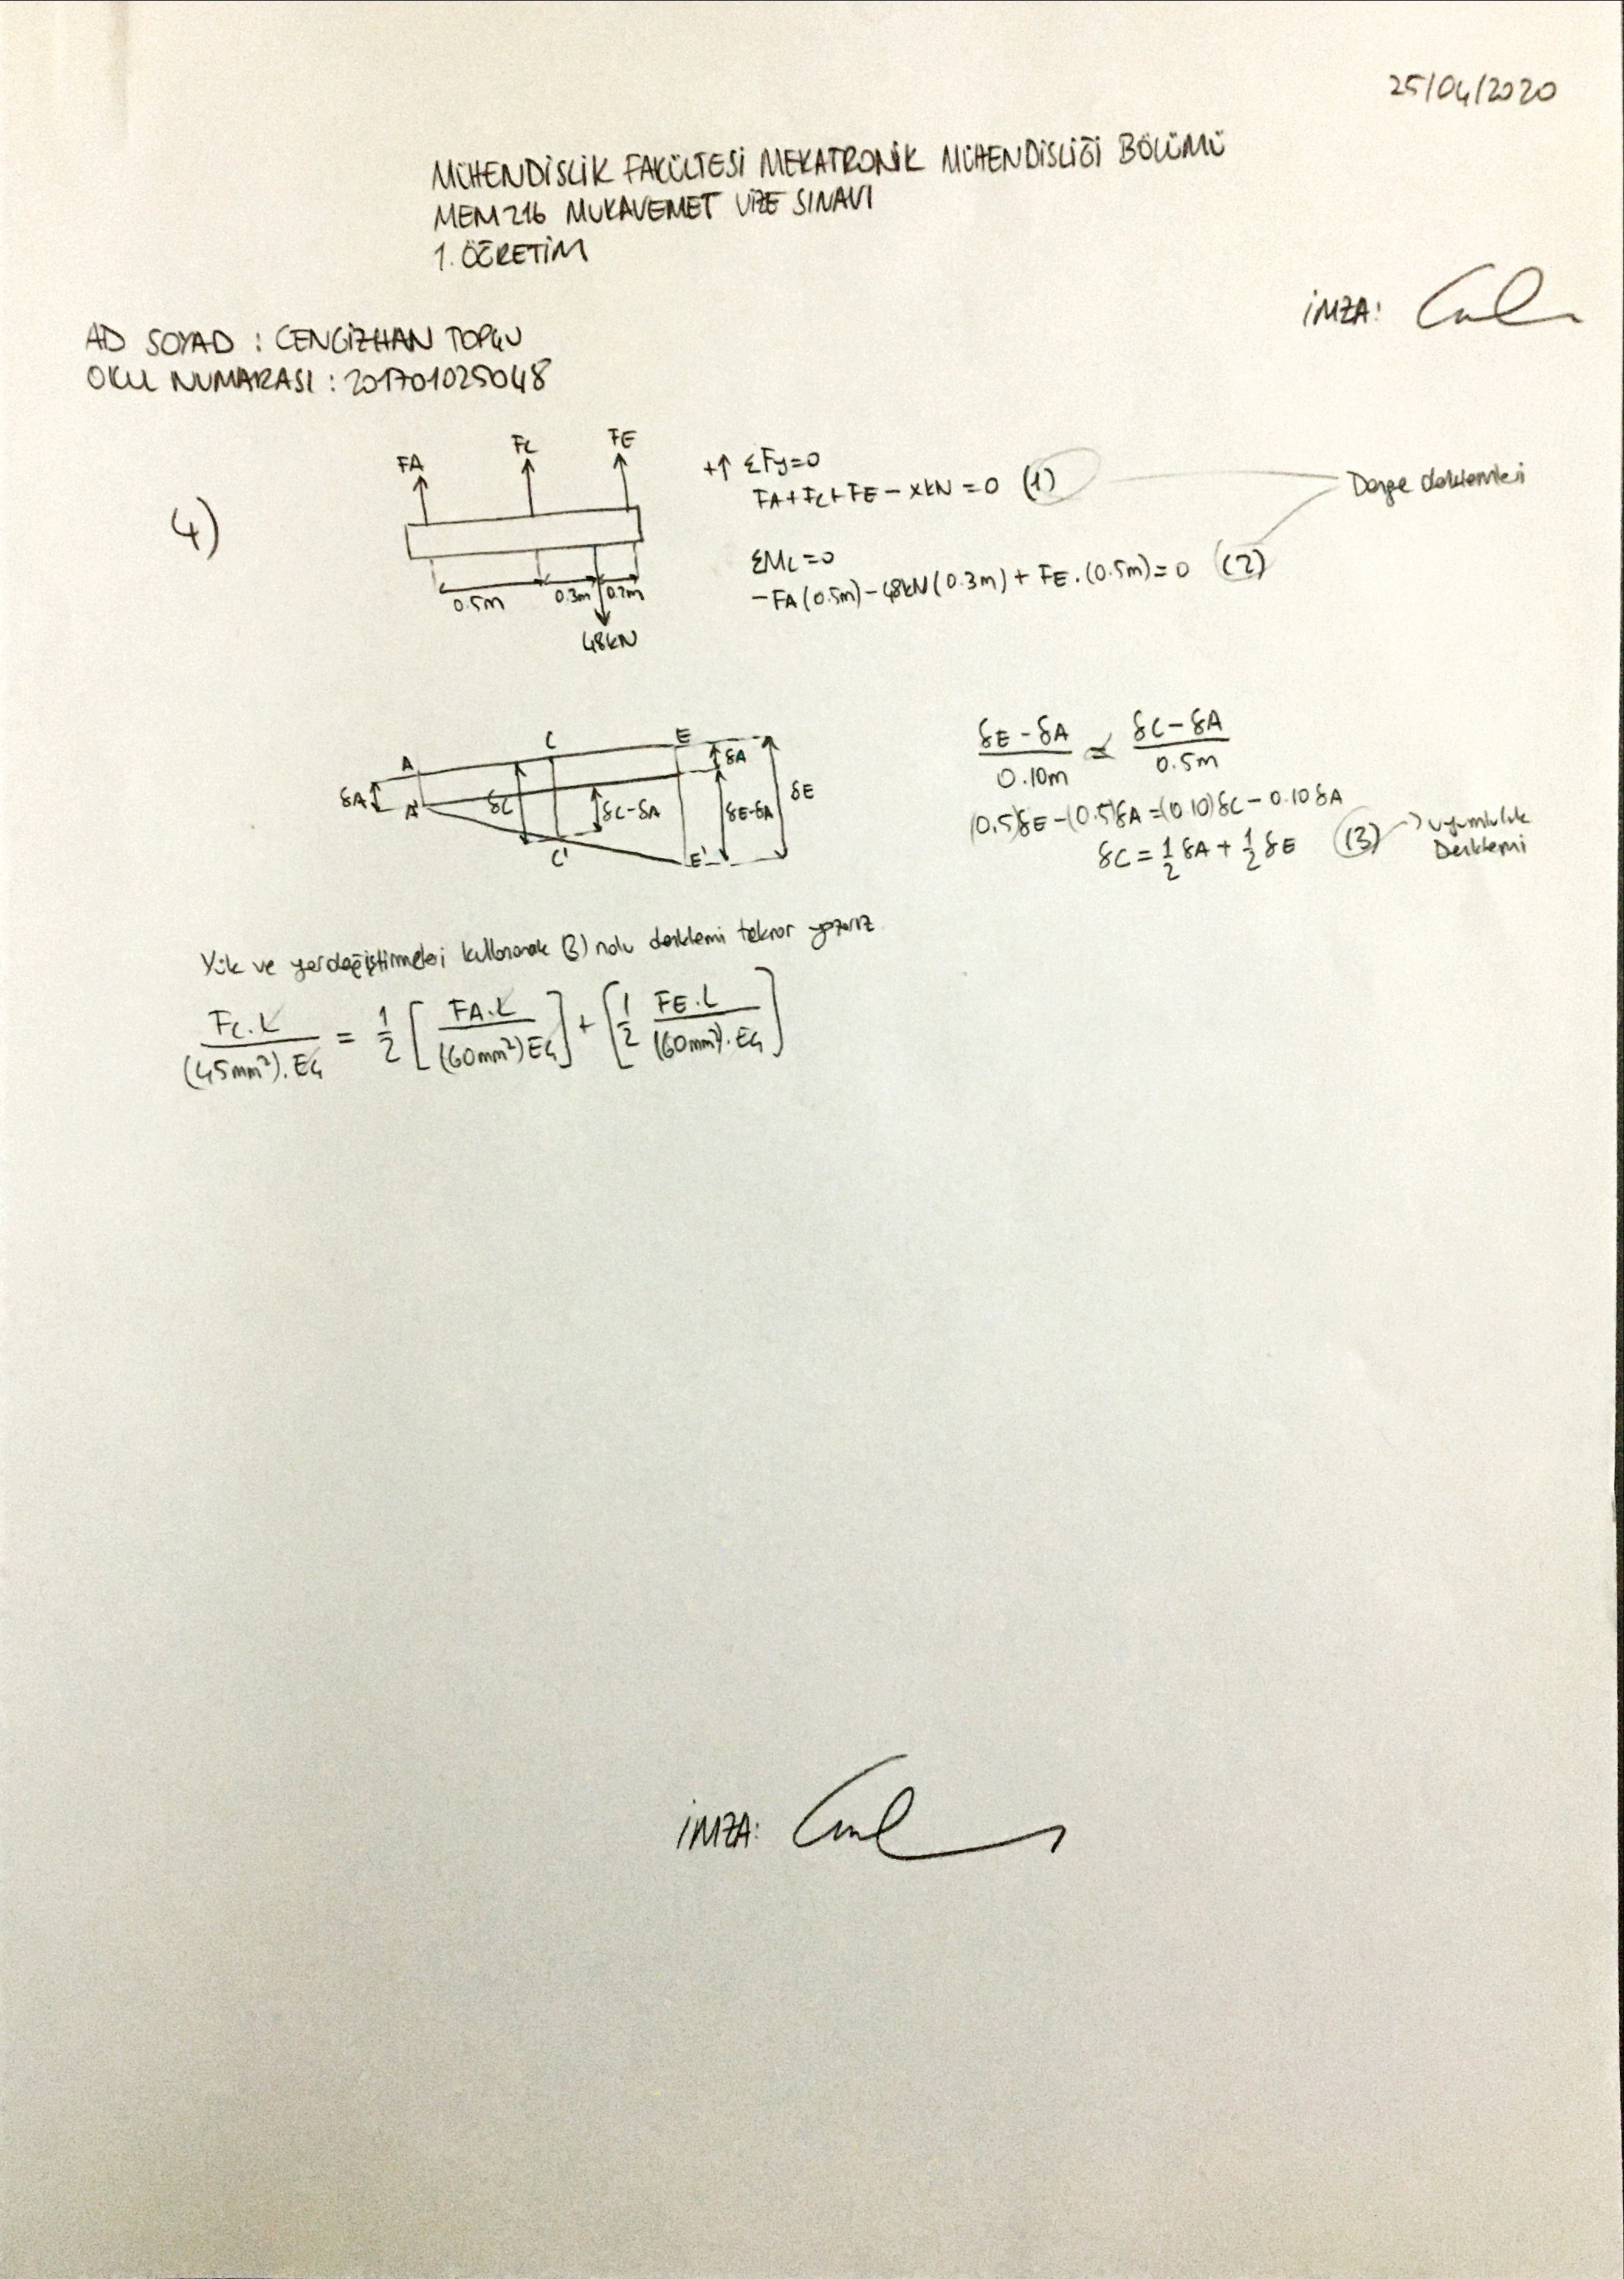 25/04/2020
MÜHENDİSLİK FAKÜLTESİ MEKATRONİK MÜHENDİSLİĞİ BÖLÜMÜ
MEM216 MUKAVEMET VİZE SINAVI
1. ÖĞRETİM
İMZA:
AD SOYAD : CENGİZHAN TOPÇU
OKUL NUMARASI : 201701025048
4)
FA FC FE
0.5m 0.3m 0.2m
48kN
+↑ ΣFy=0
FA+FC+FE - xkN = 0 (1)
Denge denklemleri
ΣMC=0
-FA(0.5m) - 48kN(0.3m) + FE.(0.5m)=0 (2)
A C E
δA A' δC δC-δA δE-δA δA δE
C' E'
(δE - δA)/0.10m = (δC - δA)/0.5m
(0.5)δE - (0.5)δA = (0.10)δC - 0.10δA
δC = 1/2 δA + 1/2 δE (3) → uyumluluk
Denklemi
Yük ve yerdeğiştirmeleri kullanarak (3) nolu denklemi tekrar yazarız.
FC.L/((45mm²).Eç) = 1/2 [FA.L/((60mm²)Eç)] + [1/2 FE.L/((60mm²).Eç)]
İMZA: